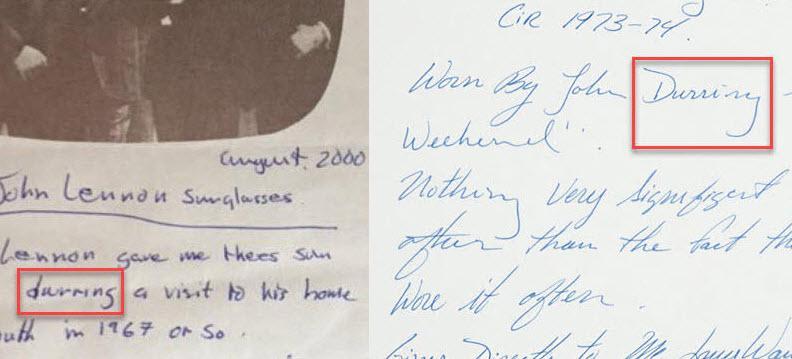 august. 2000
John Lennon Sunglasses
Lennon gave me thees sun
durring a visit to his house
in 1967 or so.
CiR 1973-74.
Worn By John Durring -
Weekend".
Nothing Very Signifigent
after than the fact
Wore it often.
Directly to Me